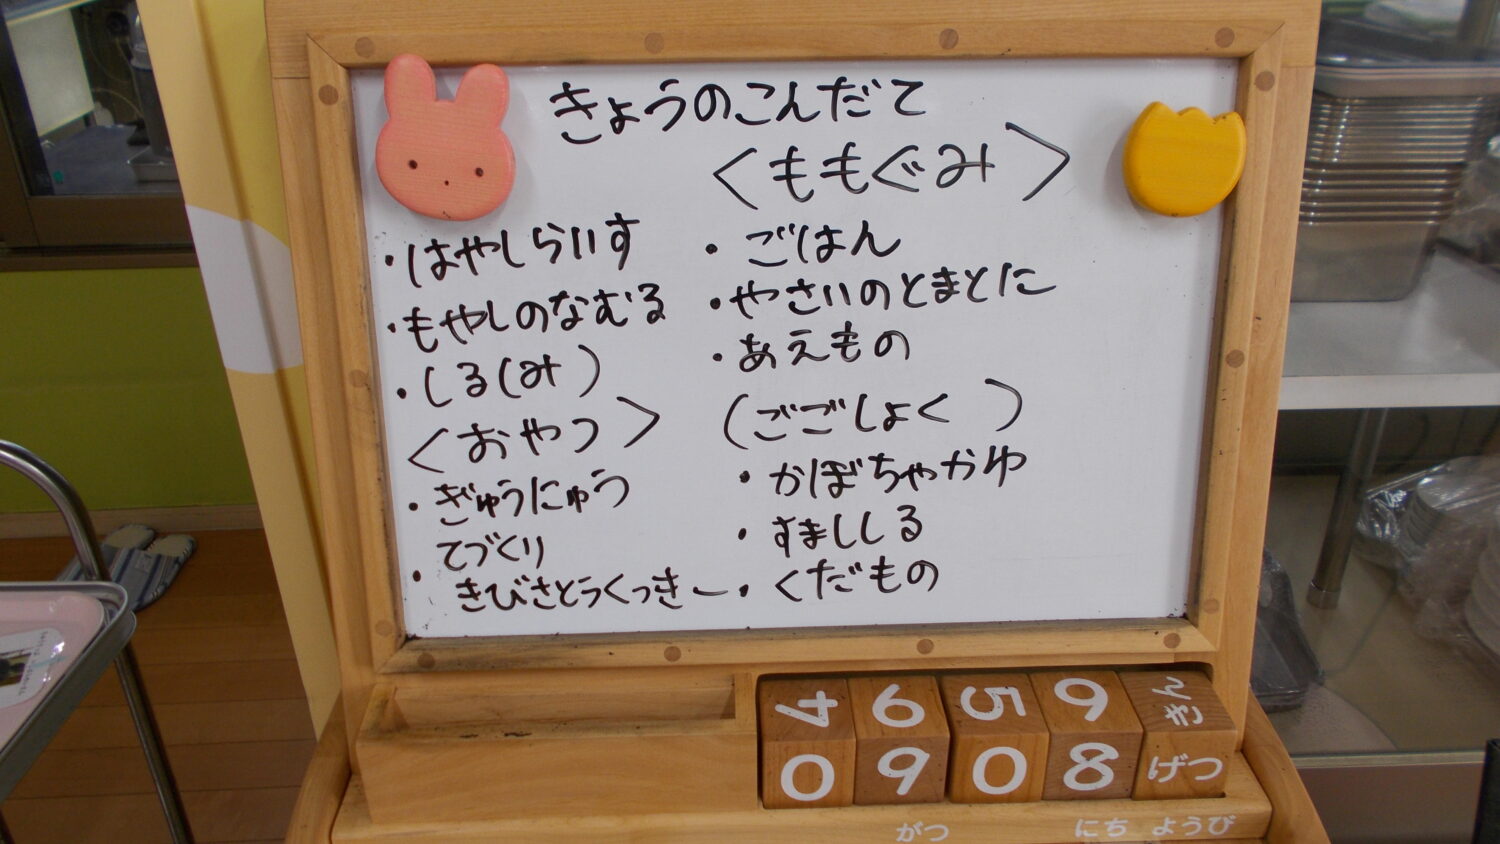 きょうのこんだて
・はやしらいす
・もやしのなむる
・しる(み)
<おやつ>
・ぎゅうにゅう
・てづくり
きびさとうくっきー
<ももぐみ>
・ごはん
・やさいのとまとに
・あえもの
(ごごしょく)
・かぼちゃかゆ
・すまししる
・くだもの
4 6 5 9 きん
0 9 0 8 げつ
がつ にち ようび